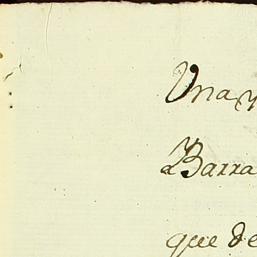 Una y
Barra
que de